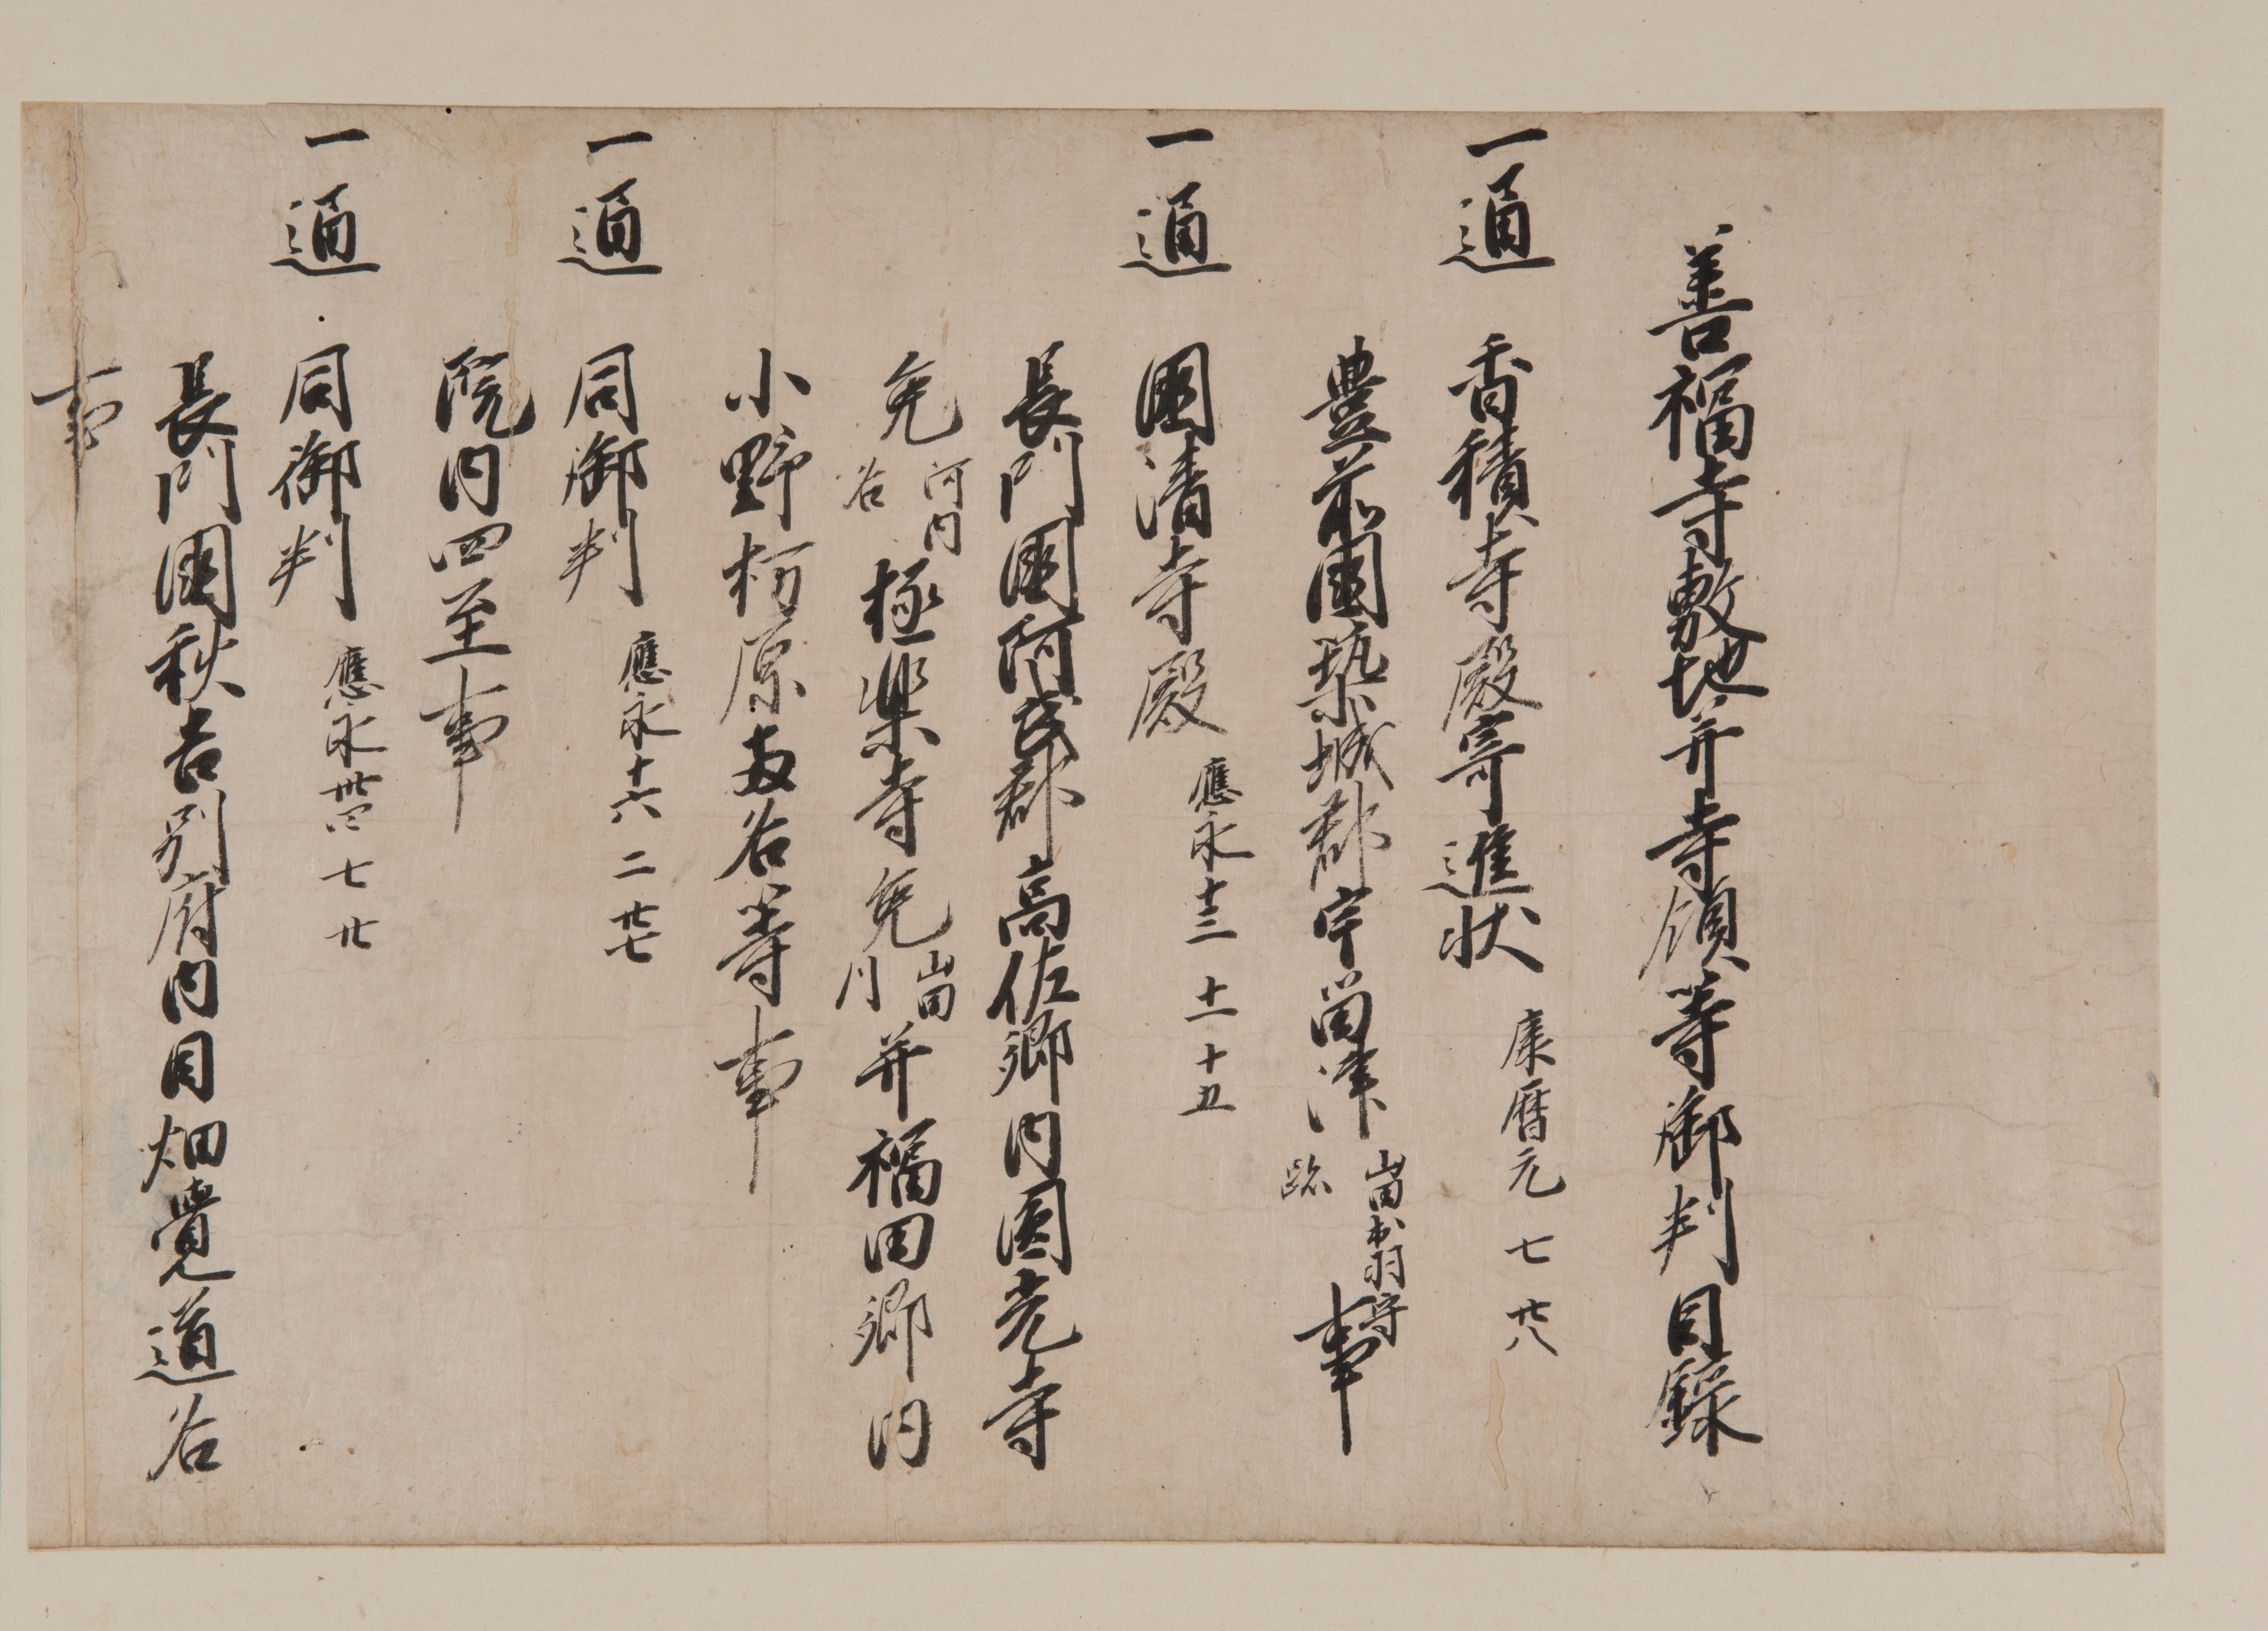 善福寺敷地并寺領等御判目録
一通 香積寺殿寄進状 康暦元 七 廿八
豊前國築城郡宇留津 畠山出羽守跡 事
一通 國清寺殿 應永十三 十一 十五
長門國阿武郡高佐郷内圓光寺
免 河内谷 極楽寺免 畠山 并福田郷内
小野杤原両谷等事
一通 同御判 應永十六 二 廿七
院内四至事
一通 同御判 應永卅四 七 廿
長門國秋吉別府内目畑覺道谷
事